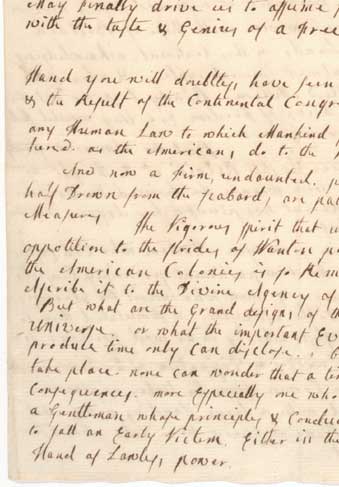 May finally drive us to assume
with the taste & Genius of a free
Hand you will doubtless have seen
& the Result of the Continental Congr
any Human Law to which Mankind
as the Americans, do to the
And now a firm, undaunted.
half Drawn from the scabard, are
Measures,
The Vigorous Spirit that
oppotition to the strides of Wanton po
the American Colonies is so Rem
Ascribe it to the Divine Agency of
But what are the Grand designs, of th
UNIVerse. or what the important Ev
produce time only Can disclose.
take place. none Can wonder that a
Consequences. more Especially one who
a Gentleman whose principles & Conduc
to fall an Early Victem. Either in the
Hand of Lawless, power.